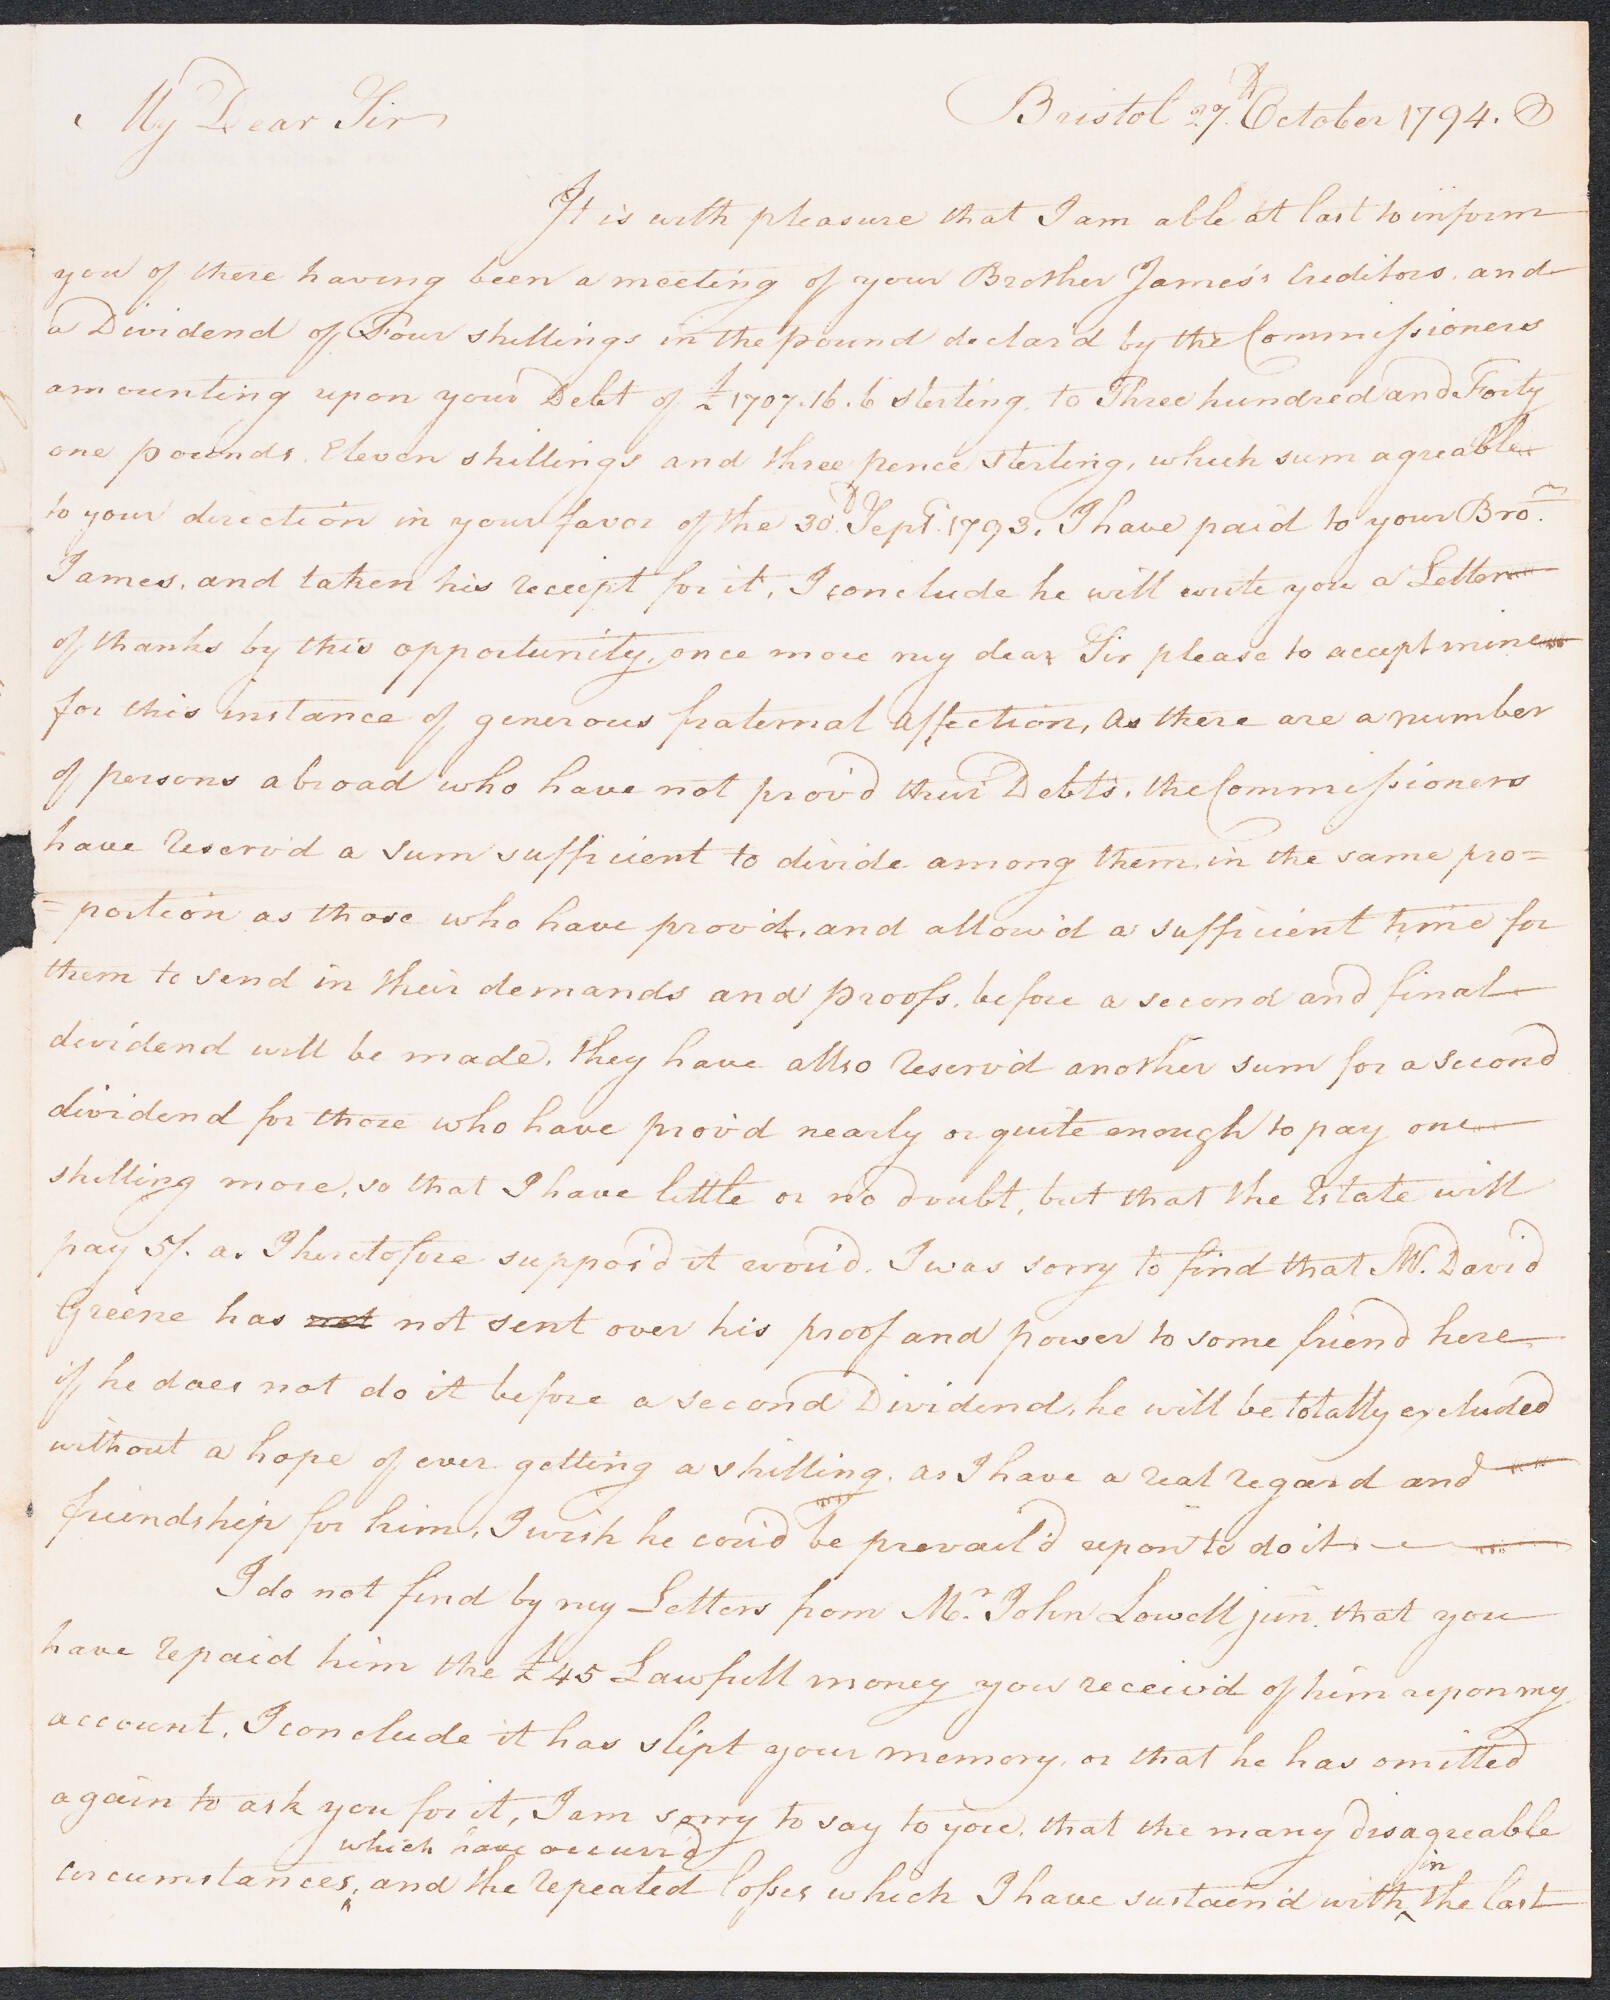 My Dear Sir
Bristol 27th October 1794.
It is with pleasure that I am able at last to inform
you of there having been a meeting of your Brother James's Creditors, and
a Dividend of Four shillings in the pound declar'd by the Commissioners
amounting upon your Debt of £1707.16.6 sterling, to Three hundred and Forty
one pounds Eleven shillings and three pence sterling, which sum agreable
to your direction in your favor of the 30th Sept. 1793. I have paid to your Bro.
James, and taken his receipt for it, I conclude he will write you a Letter
of thanks by this opportunity, once more my dear Sir please to accept mine
for this instance of generous fraternal affection, as there are a number
of persons abroad who have not prov'd their Debts, the Commissioners
have reserv'd a sum sufficient to divide among them in the same pro=
=portion as those who have prov'd, and allow'd a sufficient time for
them to send in their demands and proofs, before a second and final
dividend will be made, they have allso reserv'd another sum for a second
dividend for those who have prov'd nearly or quite enough to pay one
shilling more, so that I have little or no doubt, but that the Estate will
pay 5/. as I heretofore suppos'd it wou'd, I was sorry to find that Mr. David
Greene has not not sent over his proof and power to some friend here
if he does not do it before a second Dividend, he will be totally excluded
without a hope of ever getting a shilling, as I have a real regard and
friendship for him, I wish he cou'd be prevail'd upon to do it.
I do not find by my Letters from Mr. John Lowell jun. that you
have repaid him the £45 Lawfull money you receiv'd of him upon my
account, I conclude it has slipt your memory, or that he has omitted
again to ask you for it, I am sorry to say to you, that the many disagreable
which have occurr'd
in
circumstances, and the repeated losses which I have sustain'd with the last